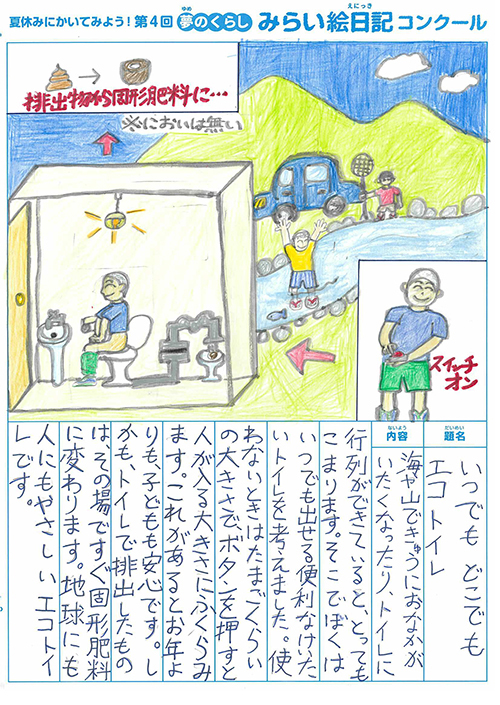 夏休みにかいてみよう！第4回 夢のくらし みらい絵日記コンクール
ゆめ
えにっき
排出物から固形肥料に…
※においは無い
スイッチ
オン
だいめい
題名
いつでも どこでも
エコ トイレ
ないよう
内容
海や山できゅうにおなかが
いたくなったり、トイレに
行列ができていると、とっても
こまります。そこでぼくは
いつでも出せる便利なけいた
いトイレを考えました。使
わないときはたまごくらい
の大きさで、ボタンを押すと
人が入る大きさにふくらみ
ます。これがあるとお年よ
りも、子どもも安心です。し
かも、トイレで排出したもの
は、その場ですぐ固形肥料
に変わります。地球にも
人にもやさしいエコトイ
レです。